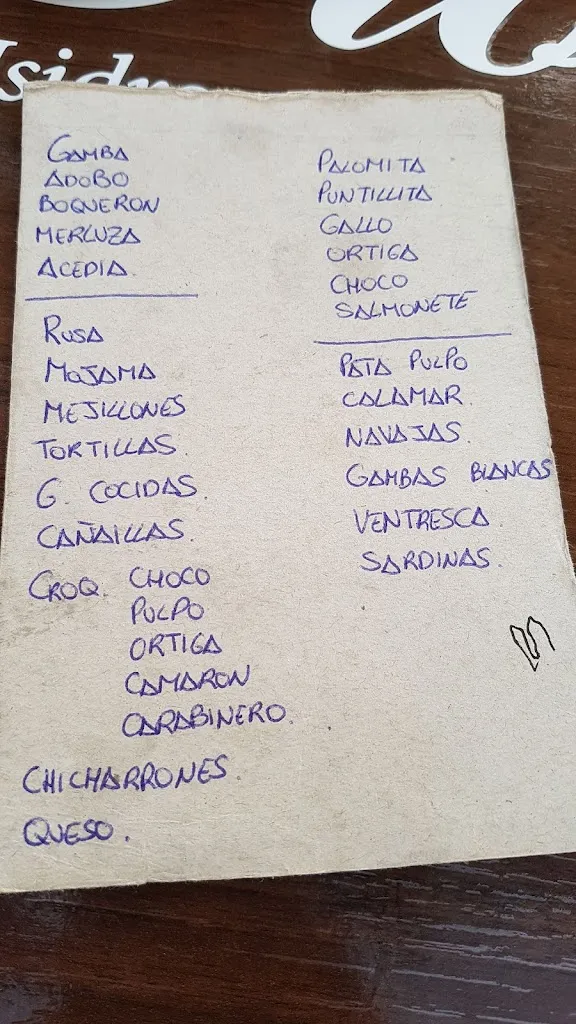 Isidro
GAMBA
ADOBO
BOQUERON
MERLUZA
ACEDIA.
RUSA
MOJAMA
MEJILLONES
TORTILLAS.
G. COCIDAS.
CAÑAILLAS.
CROQ. CHOCO
PULPO
ORTIGA
CAMARON
CARABINERO.
CHICHARRONES.
QUESO.
PALOMITA
PUNTILLITA
GALLO
ORTIGA
CHOCO
SALMONETE
PATA PULPO
CALAMAR.
NAVAJAS.
GAMBAS BLANCAS
VENTRESCA.
SARDINAS.